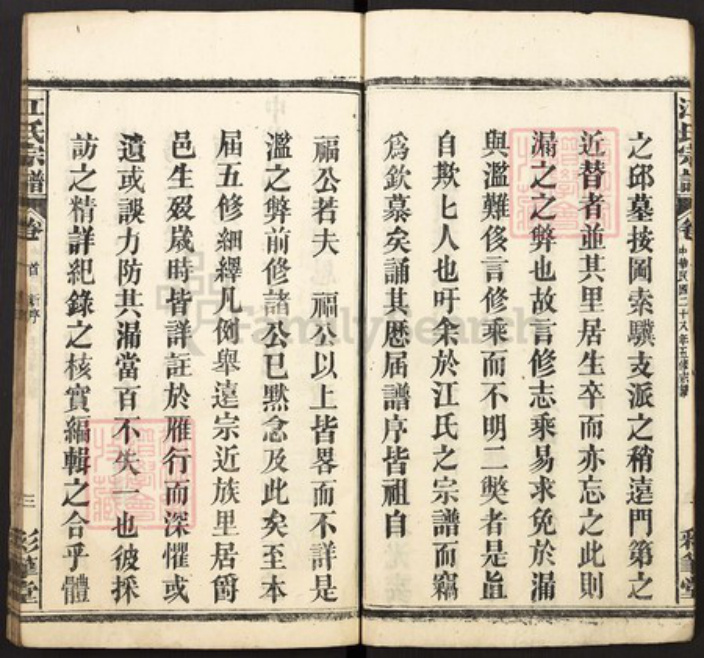 之邱墓按圖索驥支派之稍遠門第之
近替者並其里居生卒而亦忘之此則
漏之之弊也故言修志乘易求免於漏
與濫難侈言修乘而不明二獘者是眞
自欺匕人也吁余於江氏之宗譜而竊
爲欽慕矣誦其歷届譜序皆祖自
福公若夫 福公以上皆畧而不詳是
濫之弊前修諸公已默念及此矣至本
届五修細繹凡例舉遠宗近族里居爵
邑生殁歲時皆詳註於雁行而深懼或
遺或誤力防其漏當百不失一也彼採
訪之精詳紀錄之核實編輯之合乎體
江氏宗譜
卷
中華民國二十八年五修宗譜
彩筆堂
江氏宗譜
卷
首
新序
三
彩筆堂
FamilySearch